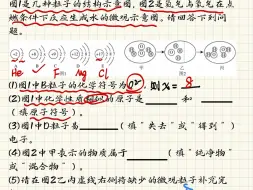 图1是几种粒子的结构示意图,图2是氢气与氧气在点
燃条件下反应生成水的微观示意图。请回答下列问
题。
He F Mg Cl
(1)图1中B粒子的化学符号为 O²⁻ 则x= 8
(2)图1中化学性质相似的原子是 和
(填原子序号)。
(3)图1中D粒子易 (填“失去”或“得到)
电子。
(4)图2中甲表示的物质属于 (填“纯净物”
或“混合物”)。
(5)请在图2乙内虚线右侧将缺少的微观粒子补充完